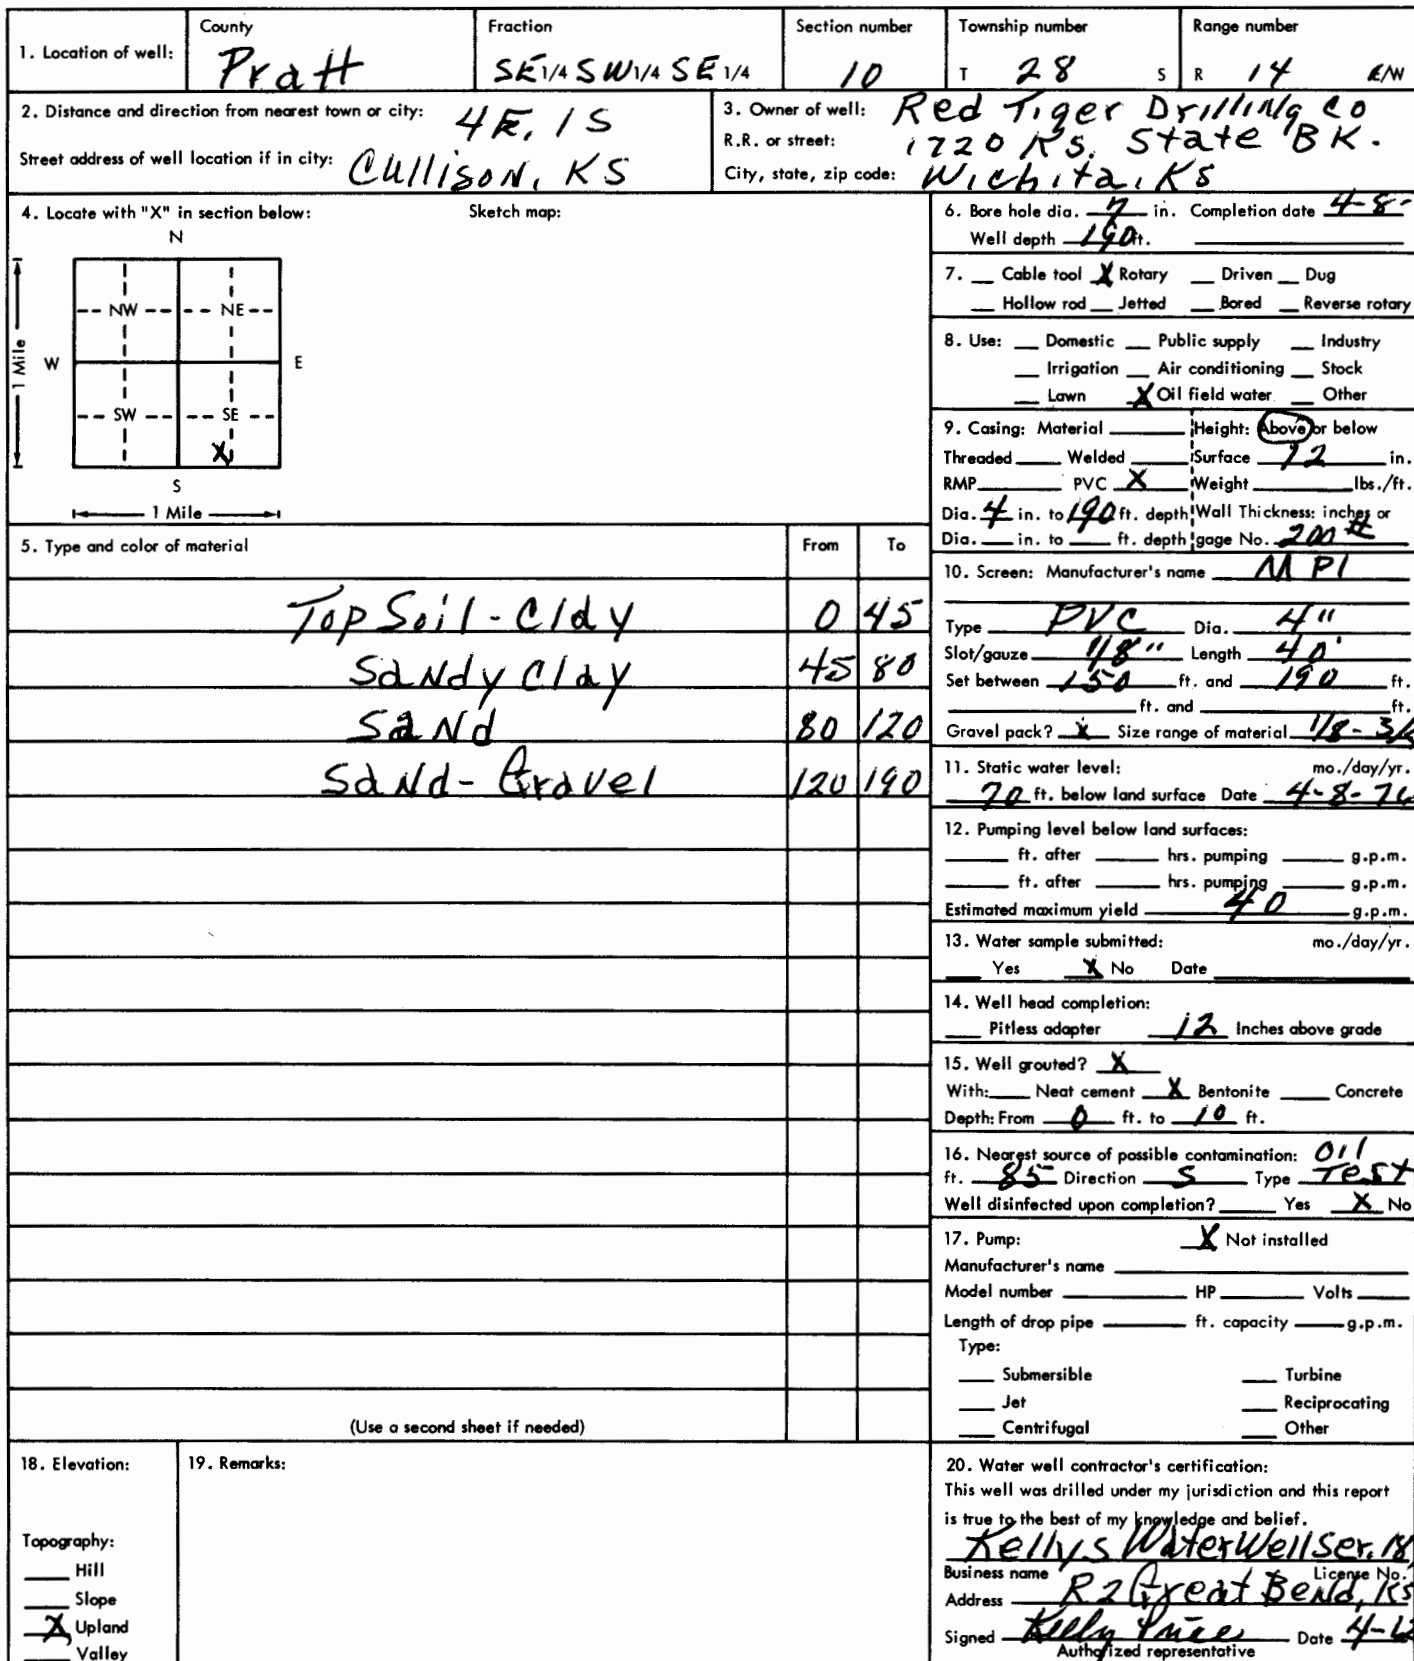 1. Location of well:
County
Pratt
Fraction
SE 1/4 SW 1/4 SE 1/4
Section number
10
Township number
T 28 S
Range number
R 14 E/W
2. Distance and direction from nearest town or city: 4E, 1S
Street address of well location if in city: Cullison, KS
3. Owner of well: Red Tiger Drilling Co
R.R. or street: 1720 KS. State BK.
City, state, zip code: Wichita, KS
4. Locate with "X" in section below:
Sketch map:
N
NW NE
W E
1 Mile
SW SE
X
S
1 Mile
5. Type and color of material From To
Top Soil - Clay 0 45
Sandy Clay 45 80
Sand 80 120
Sand - Gravel 120 190
(Use a second sheet if needed)
6. Bore hole dia. 7 in. Completion date 4-8-
Well depth 190 ft.
7. Cable tool X Rotary Driven Dug
Hollow rod Jetted Bored Reverse rotary
8. Use: Domestic Public supply Industry
Irrigation Air conditioning Stock
Lawn X Oil field water Other
9. Casing: Material Height: Above or below
Threaded Welded Surface 12 in.
RMP PVC X Weight lbs./ft.
Dia. 4 in. to 190 ft. depth Wall Thickness: inches or
Dia. in. to ft. depth gage No. 200 #
10. Screen: Manufacturer's name MPI
Type PVC Dia. 4"
Slot/gauze 1/8" Length 40'
Set between 150 ft. and 190 ft.
ft. and ft.
Gravel pack? X Size range of material 1/8 -
11. Static water level: mo./day/yr.
70 ft. below land surface Date 4-8-76
12. Pumping level below land surfaces:
ft. after hrs. pumping g.p.m.
ft. after hrs. pumping g.p.m.
Estimated maximum yield 40 g.p.m.
13. Water sample submitted: mo./day/yr.
Yes X No Date
14. Well head completion:
Pitless adapter 12 Inches above grade
15. Well grouted? X
With: Neat cement X Bentonite Concrete
Depth: From 0 ft. to 10 ft.
16. Nearest source of possible contamination: Oil
ft. 85 Direction S Type Test
Well disinfected upon completion? Yes X No
17. Pump: X Not installed
Manufacturer's name
Model number HP Volts
Length of drop pipe ft. capacity g.p.m.
Type:
Submersible Turbine
Jet Reciprocating
Centrifugal Other
18. Elevation:
Topography:
Hill
Slope
X Upland
Valley
19. Remarks:
20. Water well contractor's certification:
This well was drilled under my jurisdiction and this report
is true to the best of my knowledge and belief.
Kellys Water Well Ser.
Business name License No.
Address R2 Great Bend, KS
Signed Kelly Price Date 4-
Authorized representative